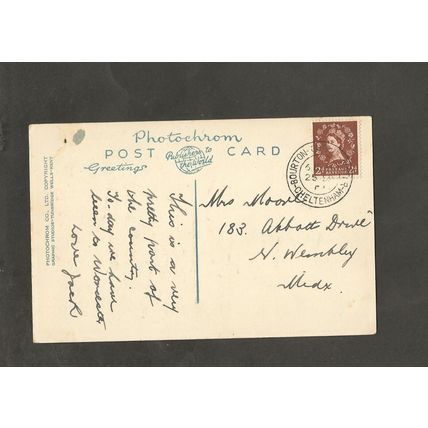 Photochrom
POST CARD
Publishers to the World
Greetings
PHOTOCHROM CO. LTD. COPYRIGHT
This is a very
pretty part of
the country.
To-day we have
been to Worcester
Love Jack
Mrs Moore
183. Abbott Drive
N. Wembley
Middx.
BOURTON-
CHELTENHAM
2D POSTAGE REVENUE 2D